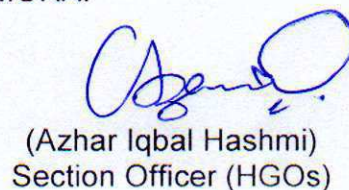 (Azhar Iqbal Hashmi)
Section Officer (HGOs)